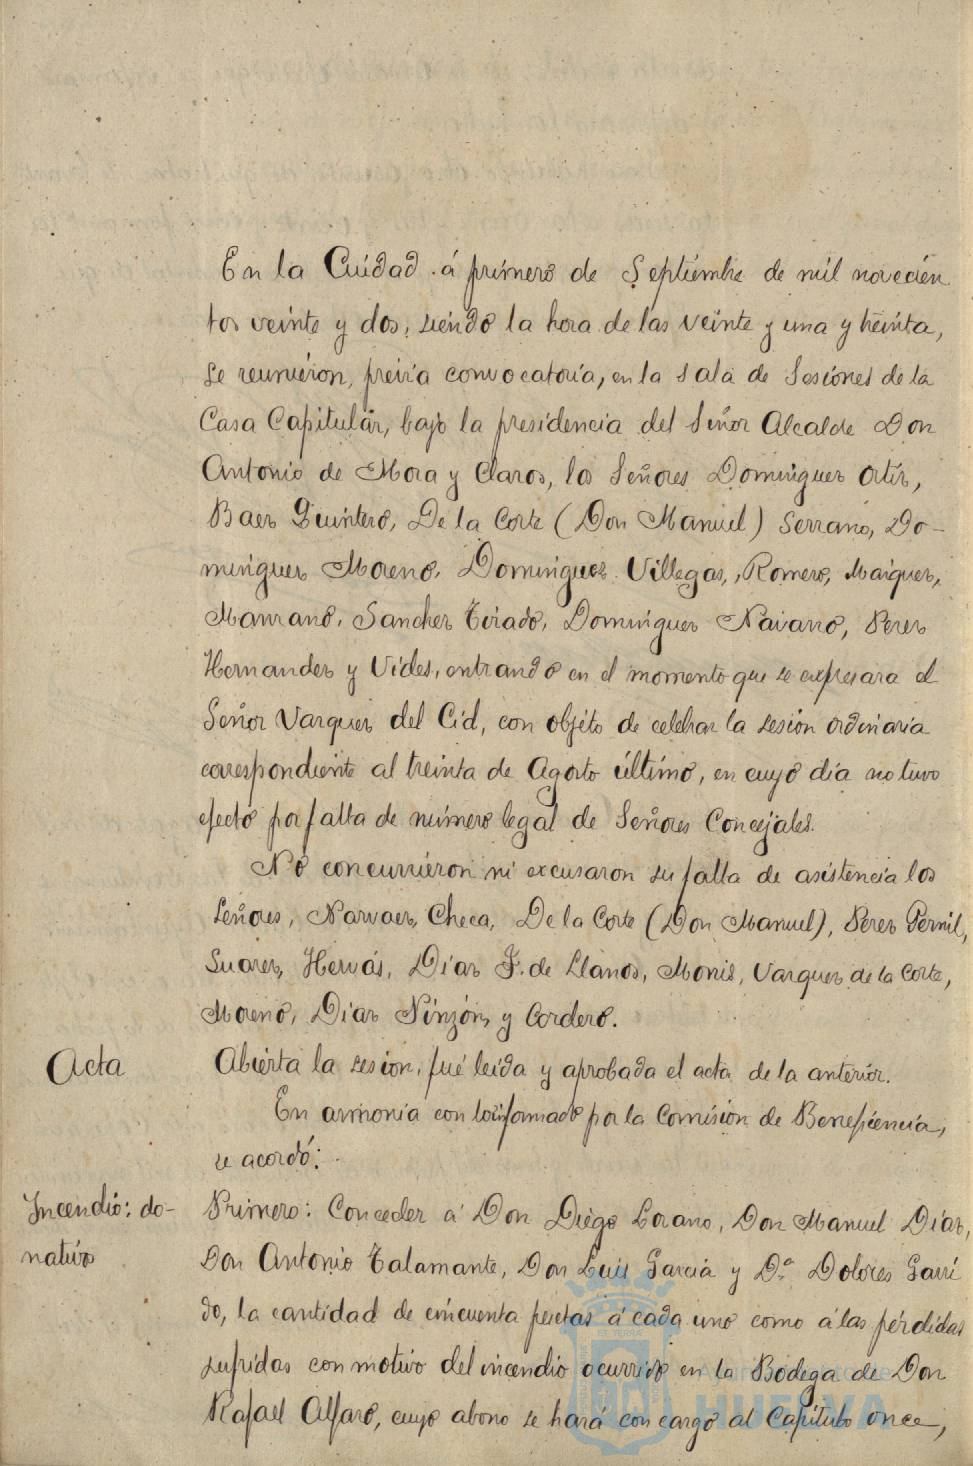 En la Cuidad á primero de Septiembre de mil novecien
tos veinte y dos, siendo la hora de las veinte y una y treinta,
se reunieron, previa convocatoria, en la sala de Sesiones de la
Casa Capitular, bajo la presidencia del Señor Alcalde Don
Antonio de Mora y Claros, los Señores Dominguez Ortiz,
Baez Quintero, De la Corte (Don Manuel) Serrano, Do-
minguez Moreno, Dominguez Villegas, Romero, Maiquez,
Manzano, Sanchez Tirado, Dominguez Navarro, Perez
Hernandez y Vides, entrando en el momento que se expresara el
Señor Vazquez del Cid, con objeto de celebrar la sesión ordinaria
correspondiente al treinta de Agosto último, en cuyo día no tuvo
efecto por falta de número legal de Señores Concejales.
No concurrieron ni excusaron su falta de asistencia los
Señores, Narvaez, Checa, De la Corte (Don Manuel), Perez Pernil,
Suarez, Hervás, Díaz F. de Llanos, Monis, Vazquez de la Corte,
Moreno, Díaz Pinzón, y Cordero.
Acta Abierta la sesion, fué leida y aprobada el acta de la anterior.
En armonia con lo informado por la Comision de Beneficencia,
se acordó:
Incendio: do- Primero: Conceder á Don Diego Lozano, Don Manuel Diaz,
nativo Don Antonio Talamante, Don Luis Garcia y Dª Dolores Garri
do, la cantidad de cincuenta pesetas á cada uno como á las pérdidas
sufridas con motivo del incendio ocurrido en la Bodega de Don
Rafael Alfaro, cuyo abono se hará con cargo al Capítulo once,
HUELVA